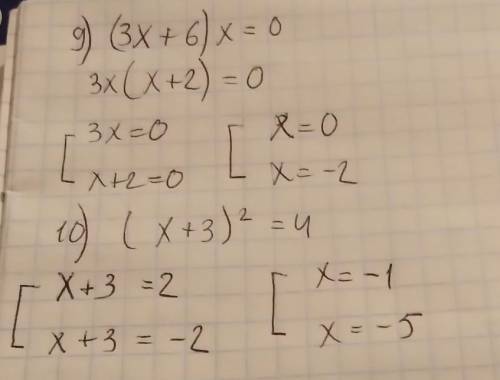 9) (3x+6)x=0
3x(x+2)=0
[3x=0 [x=0
x+2=0 x=-2
10) (x+3)²=4
[x+3=2 [x=-1
x+3=-2 x=-5